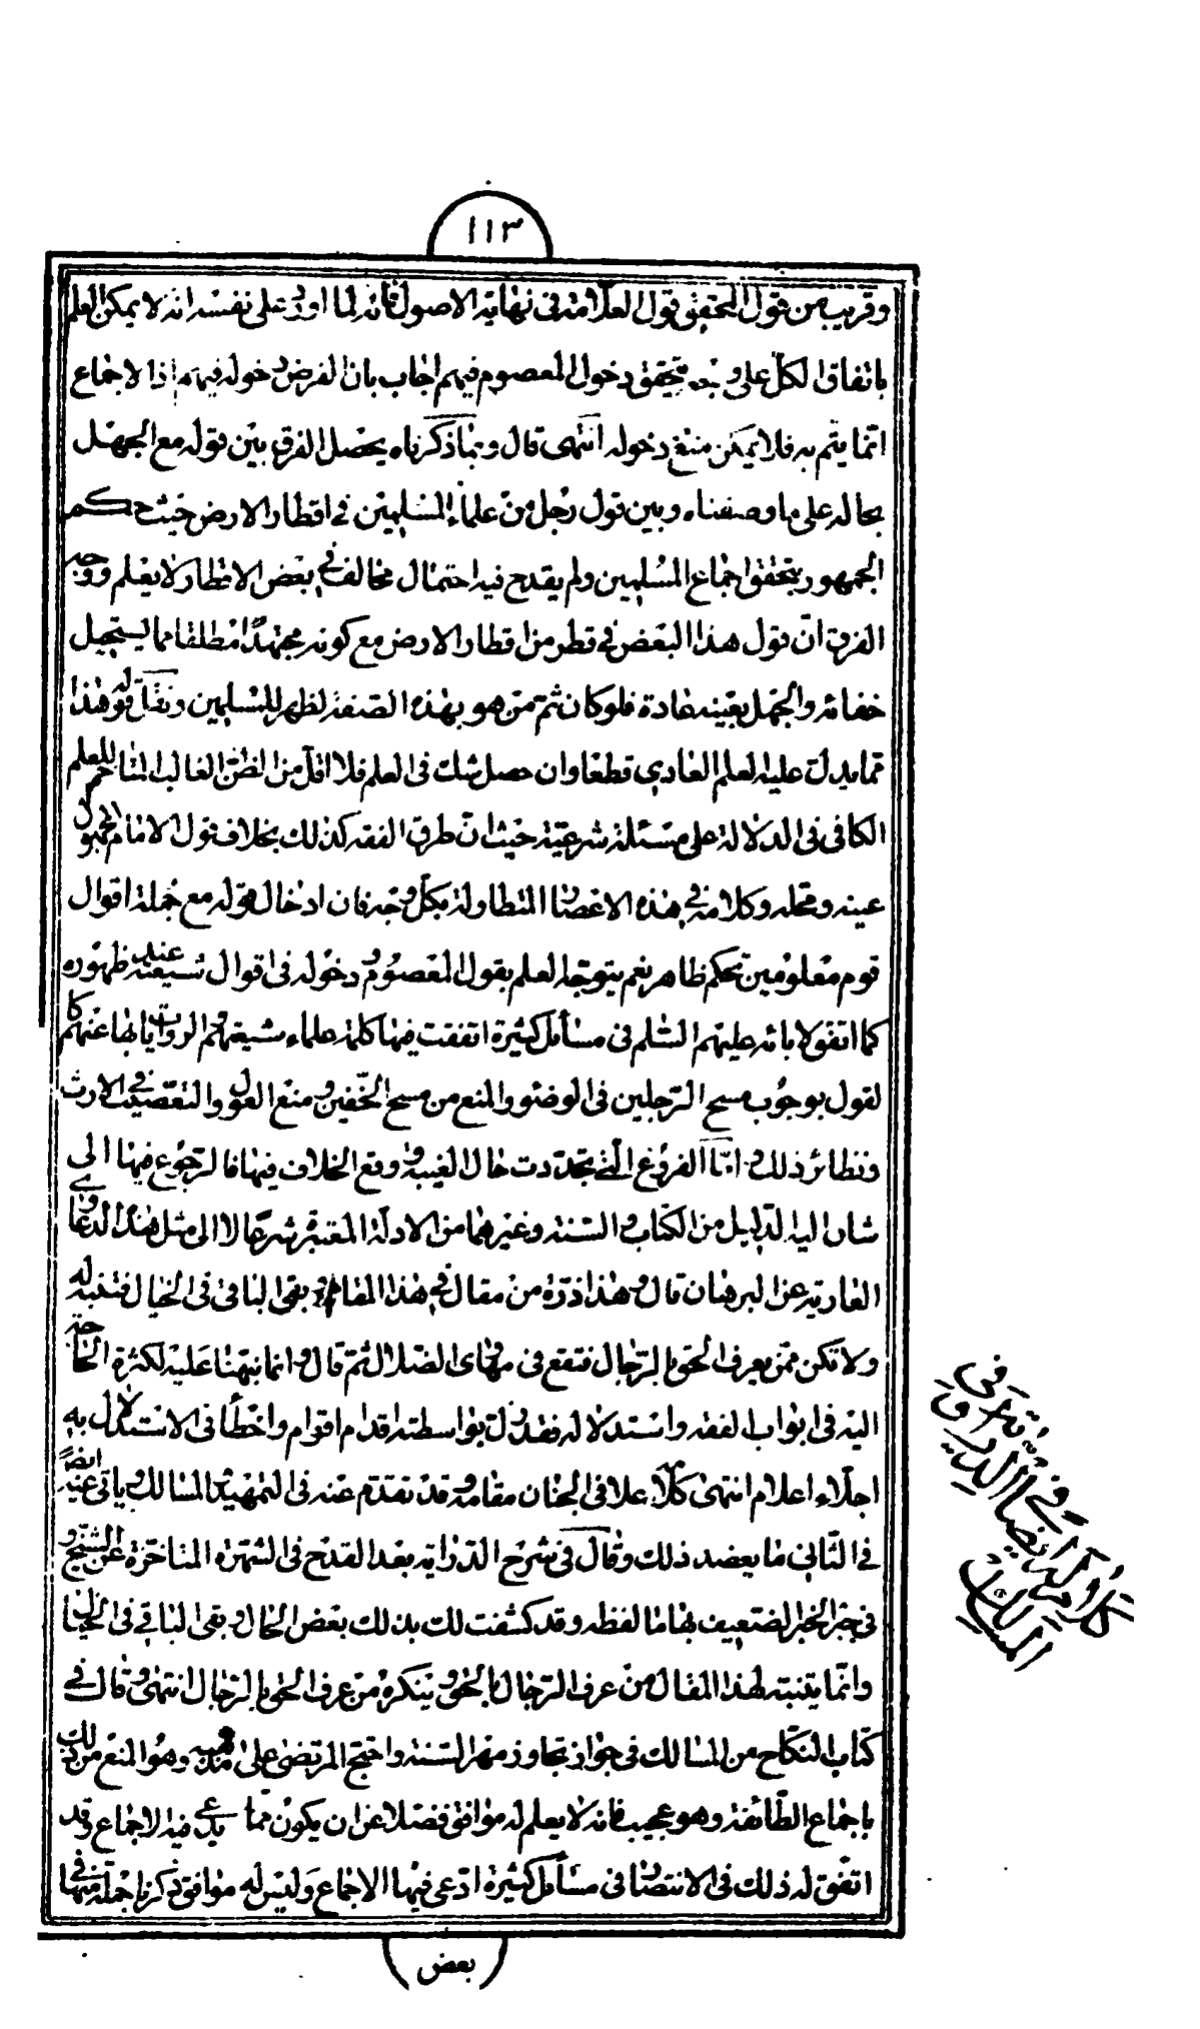 ١١٣
وقريب من قول المحقق قول العلامة فى نهاية الاصول فانه لما اورد على نفسه انه لا يمكن العلم
باتفاق الكل على وجه يتحقق دخول المعصوم فيهم اجاب بان الفرض دخوله فيهم اذا لاجماع
انما يتم به فلا يمكن منع دخوله انتهى قال وبما ذكرناه يحصل الفرق بين قوله مع الجهل
بحاله على ما وصفناه وبين قول رجل من علماء المسلمين فى اقطار الارض حيث حكم
الجمهور بتحقق اجماع المسلمين ولم يقدح فيه احتمال مخالف فى بعض الاقطار لا يعلم ووجه
الفرق ان قول هذا البعض فى قطر من اقطار الارض مع كونه مجتهدا مطلقا مما يستحيل
خفائه والجهل بعينه عادة فلو كان ثم من هو بهذه الصفة لظهر للمسلمين ونقل قوله وهذا
مما يدل عليه العلم العادى قطعا وان حصل شك فى العلم فلا اقل من الظن الغالب المتاخم للعلم
الكافى فى الدلالة على مسئلة شرعية حيث ان طرق الفقه كذلك بخلاف قول الامام المجهول
عينه ومحله وكلامه فى هذه الاعصار المتطاولة بكل وجه فان ادخال قوله مع جملة اقوال
قوم معلومين تحكم ظاهر نعم يتوجه العلم بقول المعصوم ودخوله فى اقوال شيعته عند ظهوره
كما اتفق لابائه عليهم السلم فى مسائل كثيرة اتفقت فيها كلمة علماء شيعتهم والروايات بها عنهم كا
لقول بوجوب مسح الرجلين فى الوضوء والمنع من مسح الخفين ومنع العول والتعصيب فى الارث
ونظائر ذلك واما الفروع التى تجددت حال الغيبة ووقع الخلاف فيها فالرجوع فيها الى
شان اليه الدليل من الكتاب والسنة وغيرهما من الادلة المعتبرة شرعا لا الى مثل هذه الدعاوى
العارية عن البرهان قال وهذا ذرة من مقال فى هذا المقام وبقى الباقى فى الخيال فتنبه له
ولا تكن ممن يعرف الحق بالرجال فتقع فى مهاوى الضلال ثم قال وانما نبهنا عليه لكثرة الحاجة
اليه فى ابواب الفقه واستدلاله فقد زل بواسطته اقدام اقوام واخطأ فى الاستدلال به
اجلاء اعلام انتهى كلامه اعلا فى الجنان مقامه وقد تقدم عنه فى التمهيد والمسالك وياتى عنه ايضا
فى الثانى ما يعضد ذلك وقال فى شرح الدراية بعد القدح فى الشهرة المتاخرة عن الشيخ و
فى جبر الخبر الضعيف بها ما لفظه وقد كشفت لك بذلك بعض الحال وبقى الباقى فى الخيال
وانما يتنبه لهذا المقال من عرف الرجال بالحق وينكره من عرف الحق بالرجال انتهى وقال فى
كتاب النكاح من المسالك فى جواز تجاوز مهر السنة واحتج المرتضى على مذهبه وهو المنع من ذلك
باجماع الطائفة وهو عجيب فانه لا يعلم له موافق فضلا عن ان يكون مما يدعى فيه الاجماع وقد
اتفق له ذلك فى الانتصار فى مسائل كثيرة ادعى فيها الاجماع وليس له موافق ذكرنا جملة منها فى
بعض